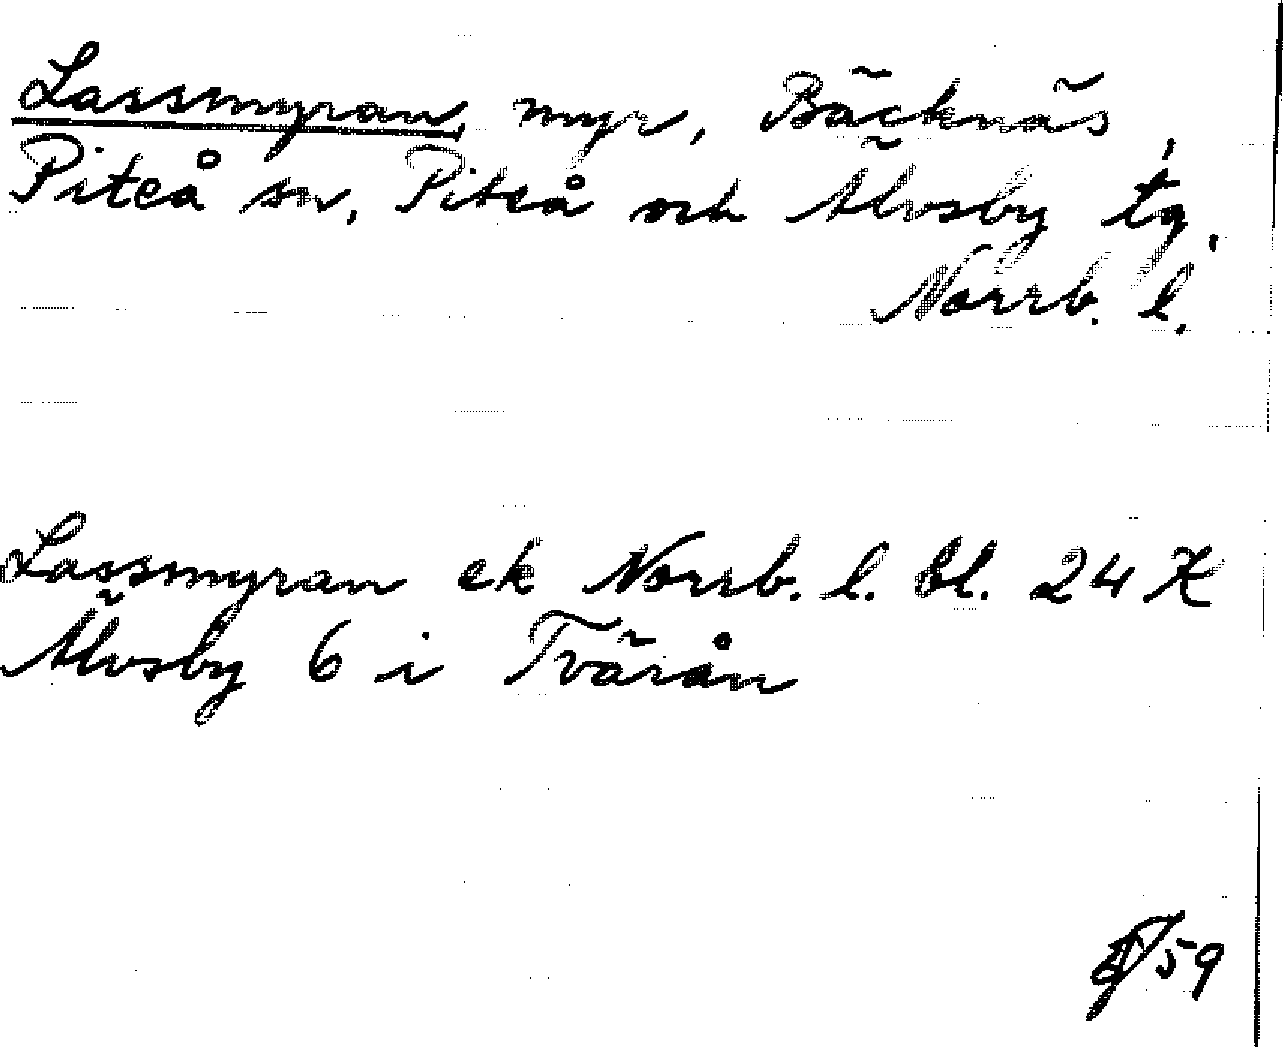 Lassmyran, myr, Bäcknäs,
Piteå sn, Piteå och Älvsby tg,
Norrb. l.
Lassmyran ek Norrb. l. bl. 24 K
Älvsby 6 i Tvärån
59